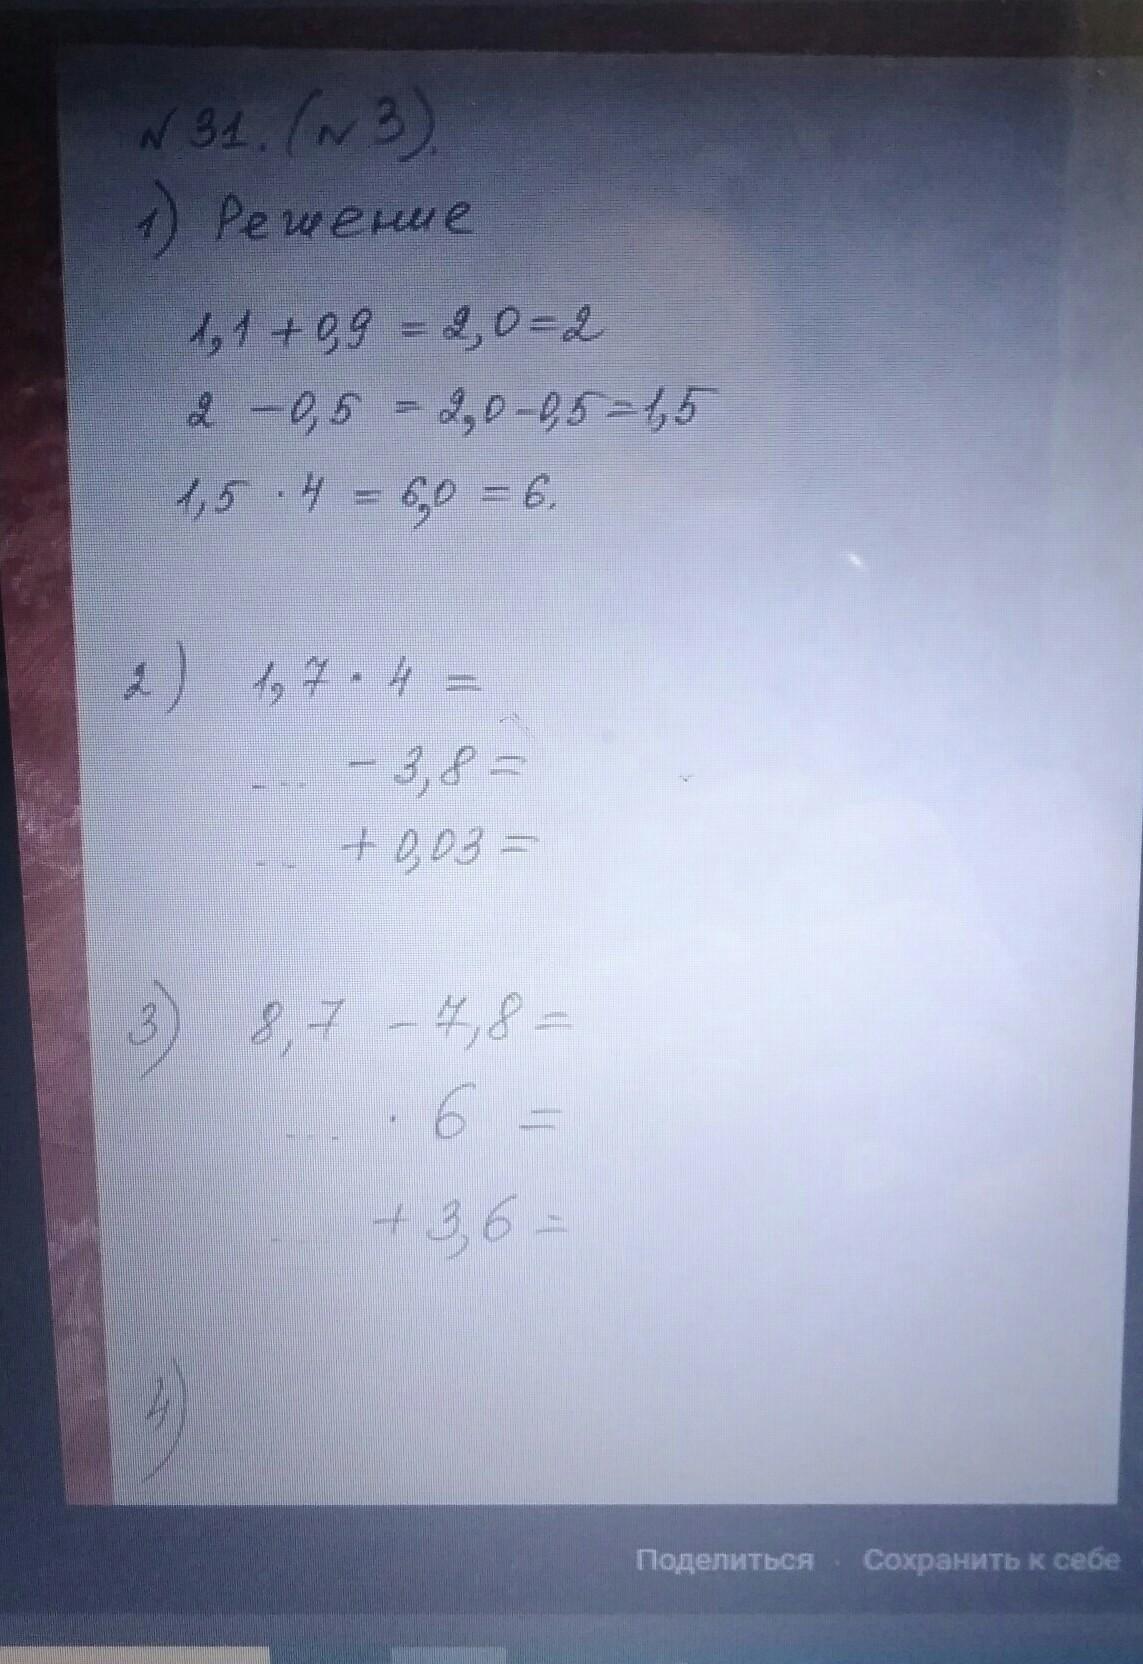 № 31. (№ 3).
1) Решение
1,1 + 0,9 = 2,0 = 2
2 - 0,5 = 2,0 - 0,5 = 1,5
1,5 · 4 = 6,0 = 6.
2) 1,7 · 4 =
... - 3,8 =
... + 0,03 =
3) 8,7 - 7,8 =
... · 6 =
... + 3,6 =
4)
Поделиться · Сохранить к себе